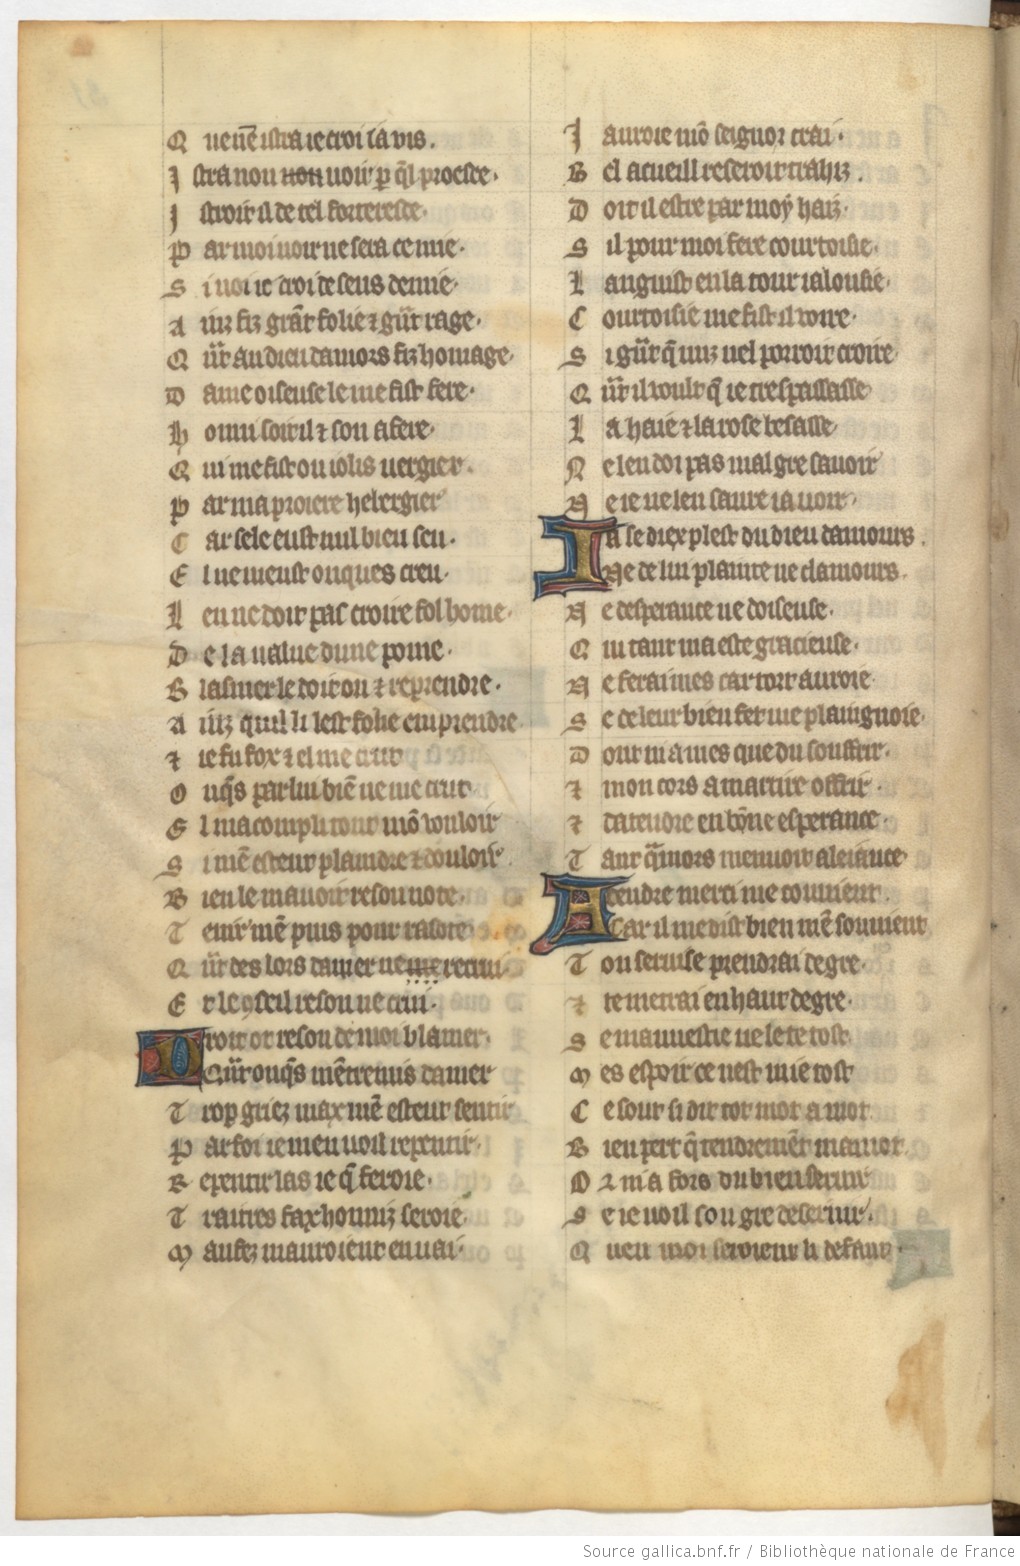 Q uen̄ istra ie croi ia vis.
I stra non non voir p̲ q̄l proesce.
I stroit il de tel forteresce.
P ar moi voir ne sera ce mie.
S i noi ie croi de sens demie.
A inz fiz grāt folie ⁊ gn̄t rage.
Q n̄t au dieu damors fiz homage.
D ame oiseuse le me fist fere.
H onni soit il ⁊ son afere.
Q ui me fist ou iolis vergier.
P ar ma proiere helergier
C ar sele eust nul bien seu.
E l ne meust onques creu.
L en ne doit pas croire fol home.
D e la value dune pome.
B lasmer le doit on ⁊ reprendre.
A inz quil li lest folie emprendre
⁊ ie fu fox ⁊ el me crut
O nq̄s par lui biē ne me crut
E l macompli tout mō vouloir
S i mē esteut plaindre ⁊ douloir.
B ien le mavoit reson note.
T enir mē puis pour rasote.
Q n̄t des lors damer ne recrui
E t le ꝯseil reson ne crui.
Droit ot reson de moi blamer.
Qn̄t onq̄s mētremis damer
T rop griez max mē esteut sentir
P ar foi ie men voil repentir.
R epentir las ie q̄ feroie.
T raitres fax honniz seroie.
M aufez mauroient envai.
I auroie mō seignor trai.
B el acueill reseroit trahiz.
D oit il estre par moy haiz.
S il pour moi fere courtoisie.
L anguist en la tour ialousie.
C ourtoisie me fist il voire.
S i gn̄t q̄ nuz nel porroit croire
Q n̄t il voult q̄ ie trespassasse
L a haie ⁊ la rose besasse
N e len doi pas mal gre savoir
N e ie ne len saure ia voir.
Ia se diex plest du dieu damours.
Ne de lui plainte ne clamours.
N e desperance ne doiseuse.
Q ui tant ma este gracieuse.
N e ferai mes car tort auroie.
S e de leur bien fet me plaingnoie.
D ont ni a mes que du souffrir.
⁊ mon cors a martire offrir.
⁊ datendre en bōne esperance.
T ant q̄mors menvoit aleiance
Atendre merci me couvient.
Car il me dist bien mē souvient
T on servise prendrai de gre.
⁊ te metrai en haut degre.
S e mauvestie ne le te tost
M es espoir ce nest mie tost
C e sont si dit tot mot a mot
B ien pert q̄ tendremēt mamot.
O ⁊ ni a fors du bien servir
S e ie voil son gre deservir.
Q uen moi seroient li defaut.